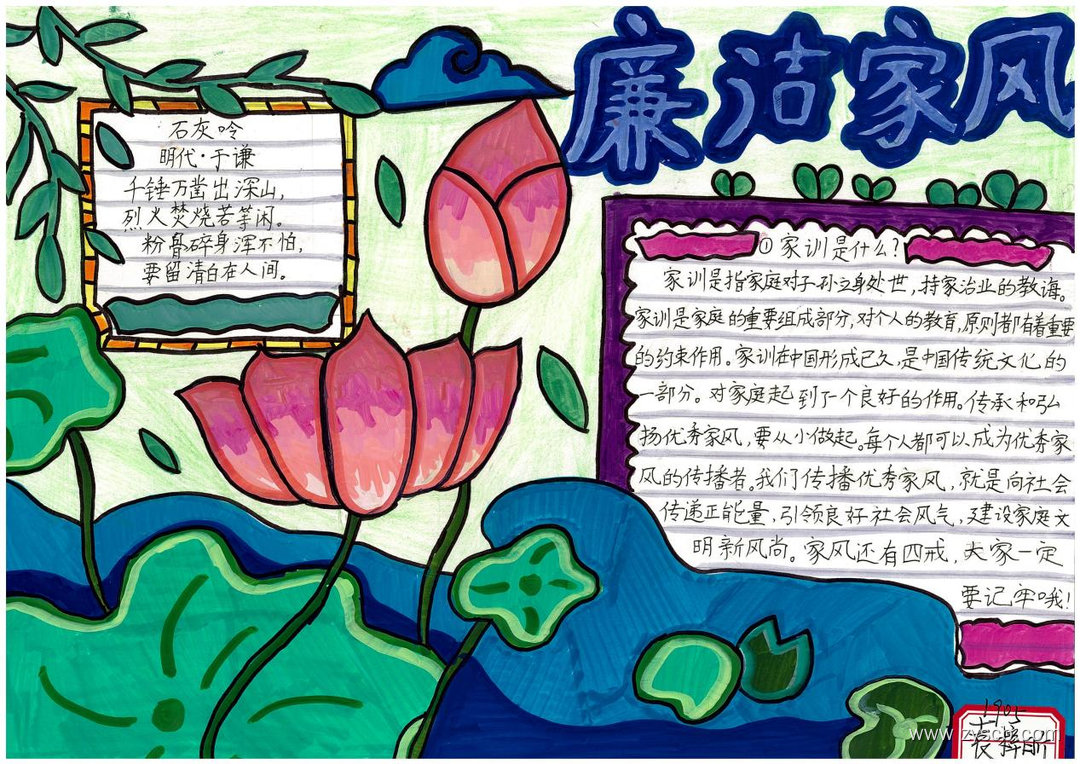 廉洁家风
石灰呤
明代·于谦
千锤万凿出深山,
烈火焚烧若等闲。
粉骨碎身浑不怕,
要留清白在人间。
①家训是什么?
家训是指家庭对子孙立身处世,持家治业的教诲。
家训是家庭的重要组成部分,对个人的教育,原则都有着重要
的约束作用。家训在中国形成已久,是中国传统文化的
一部分。对家庭起到了一个良好的作用。传承和弘
扬优秀家风,要从小做起。每个人都可以成为优秀家
风的传播者。我们传播优秀家风,就是向社会
传递正能量,引领良好社会风气,建设家庭文
明新风尚。家风还有四戒,大家一定
要记牢哦!
1905